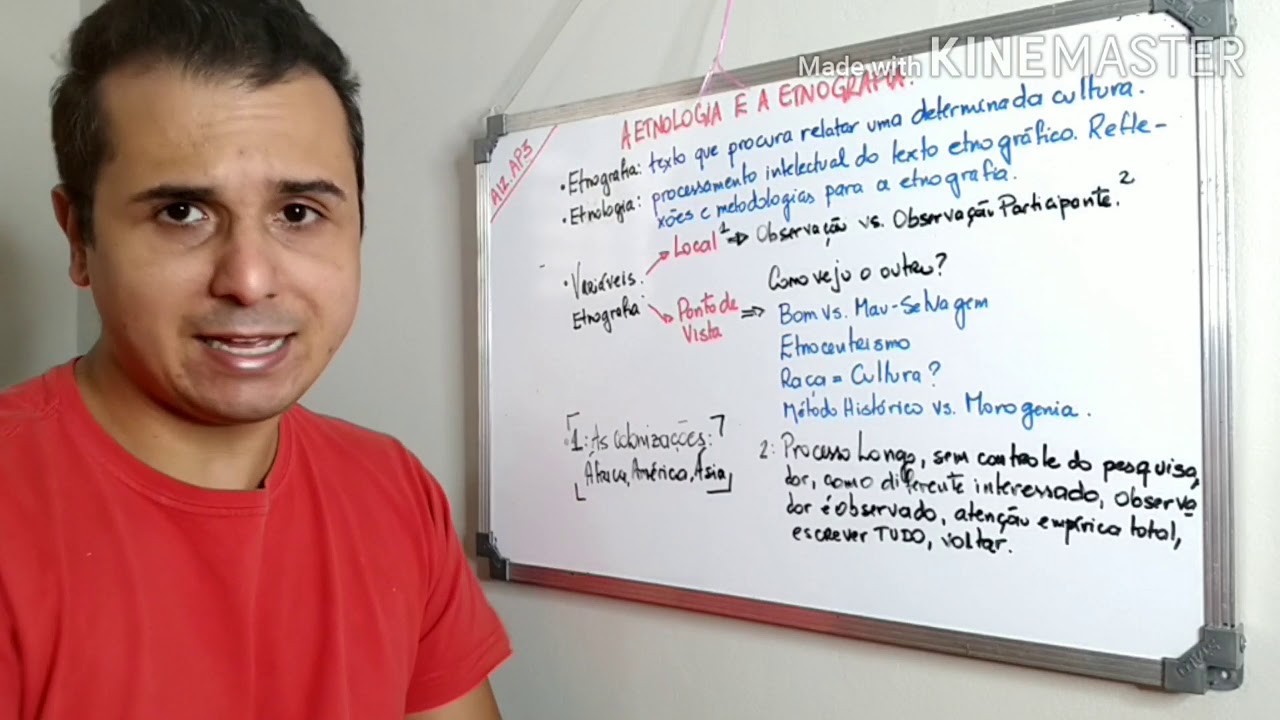 Made with KINEMASTER
A ETNOLOGIA E A ETNOGRAFIA.
A12.AP3
• Etnografia: texto que procura relatar uma determinada cultura.
• Etnologia: processamento intelectual do texto etnográfico. Refle-
xões e metodologias para a etnografia.
Local ¹ => Observação vs. Observação Participante. ²
• Variáveis.
Etnografia
Ponto de
Vista =>
Como vejo o outro?
Bom vs. Mau-Selvagem
Etnocentrismo
Raça = Cultura?
Método Histórico vs. Monogenia.
1: As colonizações:
África, América, Ásia
2: Processo Longo, sem controle do pesquisa
dor, como diferente interessado, observa
dor é observado, atenção empírica total,
escrever TUDO, voltar.